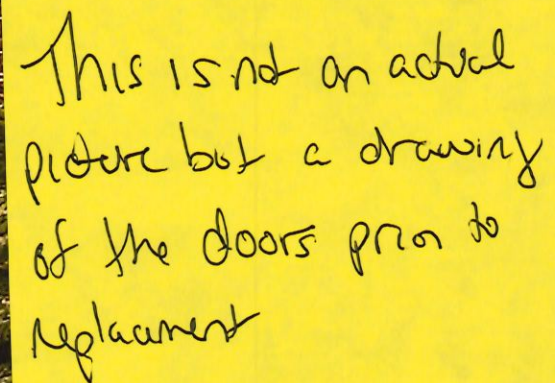 This is not an actual
picture but a drawing
of the doors prior to
replacement